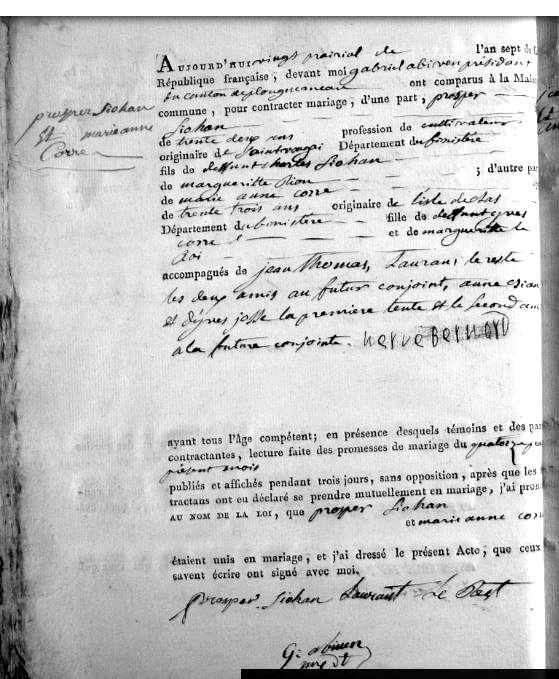 AUJOURD'HUI vingt prairial de l'an sept de la
République française, devant moi gabriel abiven président
du canton de plougneau ont comparus à la Mai
commune, pour contracter mariage, d'une part, prosper
prosper Siohan
Et marie anne
Corre
Siohan
de trente deux ans profession de cultivateur
originaire de Département du finistère
fils de deffunt charles Siohan
de margueritte ; d'autre par
de marie anne corre
de trente trois ans originaire de l'isle de bas
Département du finistère fille de deffunt yves
corre et de margueritte le
Roi
accompagnés de jean thomas, Laurans le reste
les deux amis au futur conjoint, anne
et d'yves josse la première tente et le second am
a la future conjointe. herve Bernard
ayant tous l'âge compétent; en présence desquels témoins et des par
contractantes, lecture faite des promesses de mariage du quatorze
présent mois
publiés et affichés pendant trois jours, sans opposition, après que les
tractans ont eu déclaré se prendre mutuellement en mariage, j'ai pron
AU NOM DE LA LOI, que prosper Siohan
et marie anne corr
étaient unis en mariage, et j'ai dressé le présent Acte, que ceux
savent écrire ont signé avec moi.
Prosper Siohan Laurant Le Rest
G: abiven